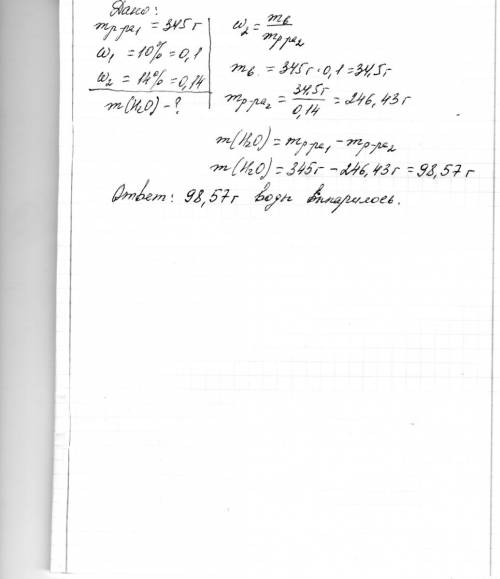 Дано:
m р-ра₁ = 345 г
ω₁ = 10% = 0,1
ω₂ = 14% = 0,14
m(H₂O) - ?
ω₂ = mв / m р-ра₂
mв = 345г · 0,1 = 34,5г
m р-ра₂ = 34,5г / 0,14 = 246,43 г
m(H₂O) = m р-ра₁ - m р-ра₂
m(H₂O) = 345г - 246,43 г = 98,57 г
Ответ: 98,57 г воды выпарилось.